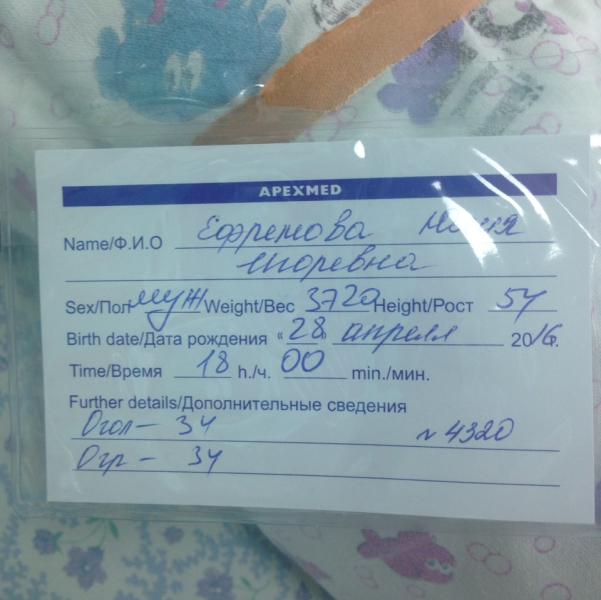 APEXMED
Name/Ф.И.О Ефремова
Игоревна
Sex/Пол муж Weight/Вес 3720 Height/Рост 54
Birth date/Дата рождения «28 апреля 2016г.
Time/Время 18 h./ч. 00 min./мин.
Further details/Дополнительные сведения
Огол – 34 N 4320
Огр – 34